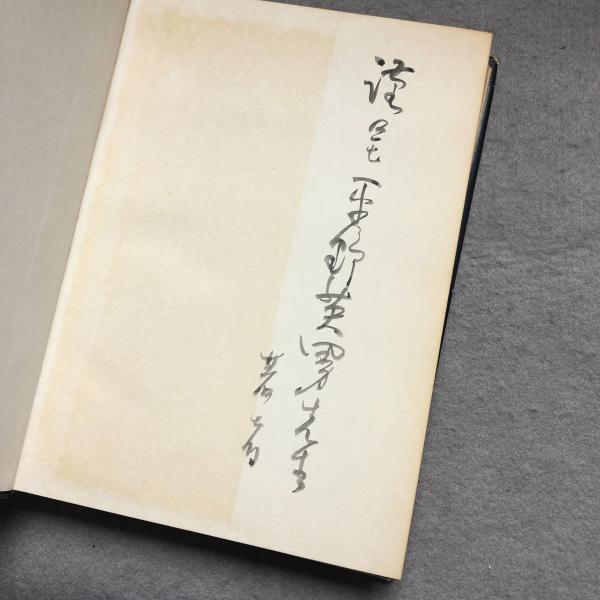 謹呈 平野英男先生
著者